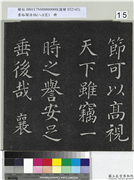 15
節可以高視
天下雖竊一
時之譽安足
垂後哉 襄